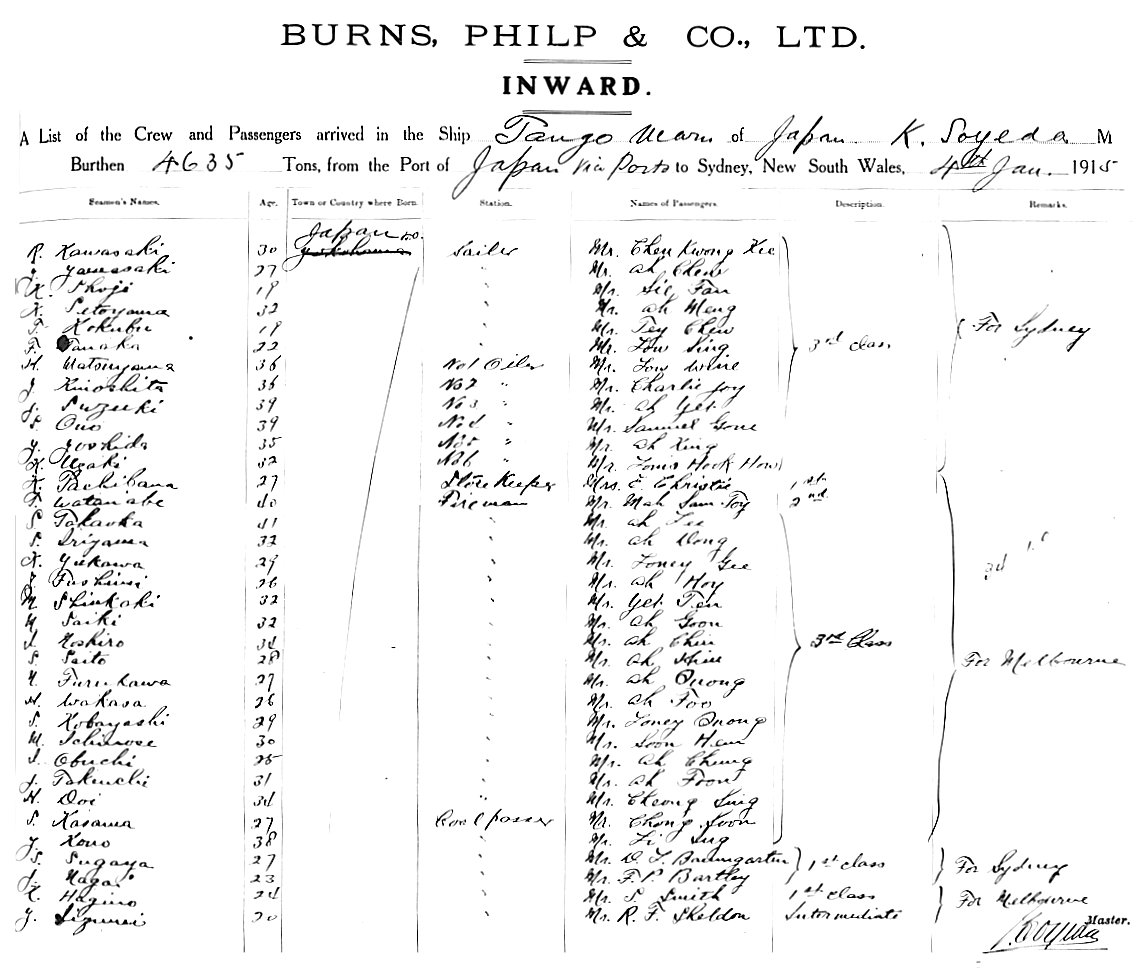 BURNS, PHILP & CO., LTD.
INWARD.
A List of the Crew and Passengers arrived in the Ship Tango Maru of Japan. K. Soyeda M
Burthen 4635 Tons, from the Port of Japan via Ports to Sydney, New South Wales, 4th Jan. 1915
Seamen's Names. Age. Town or Country where Born. Station. Names of Passengers. Description. Remarks.
Japan
R. Kawasaki 30 Yokohama Sailer Mr. Chen Kwong Kee
Yamasaki 27 " Mr. Ah Chew
K. Shoji 19 " Mr. Sic Fan
K. Setoyama 32 " Mr. Ah Meng
T. Kokubu 19 " Mr. Tey Chew For Sydney
T. Tanaka 22 " Mr. Low Sing 3rd class
H. Matsuyama 36 No1 Oiler Mr. Low
J. Kinoshita 36 No2 " Mr. Charlie Joy
Suzuki 39 No3 " Mr. Ah Yet
S. Ono 39 No4 " Mr. Samuel Gone
Y. Yoshida 35 No5 " Mr. Ah King
K. 32 No6 " Mr. Louis Hock How
K. Tachibana 27 Store Keeper Mrs. E Christie 1st
T. Watanabe 40 Fireman Mr. Mah Sam Toy 2nd
S. Takaoka 41 " Mr. Ah
S. Iriyama 32 " Mr. Ah Dong
K. Yukawa 29 " Mr. Loney Gee
Fushimi 26 " Mr. Ah Hoy
M. Shinkaki 32 " Mr. Yet Ten
M. Saiki 32 " Mr. Ah Goon
Hoshiro 34 " Mr. Ah Chin 3rd Class
S. Saito 28 " Mr. Ah For Melbourne
Furukawa 27 " Mr. Ah Quong
H. Wakasa 26 " Mr. Ah Foo
S. Kobayashi 29 " Mr. Loney Quong
M. Ichinose 30 " Mr. Soon
Obuchi 25 " Mr. Ah Cheung
Takeuchi 31 " Mr. Ah Foon
H. Doi 34 " Mr. Cheong Sing
S. Kasama 27 Coal passer Mr. Chong Soon
Y. Kono 38 " Mr. Li
S. Sugaya 27 " Mr. D. L. Baumgarten 1st class For Sydney
Nagai 23 " Mr. F. P. Bartley
K. Hagino 24 " Mr. S. Smith 1st class For Melbourne
Y. 20 " Mr. R. F. Sheldon Intermediate
Master.
K. Soyeda